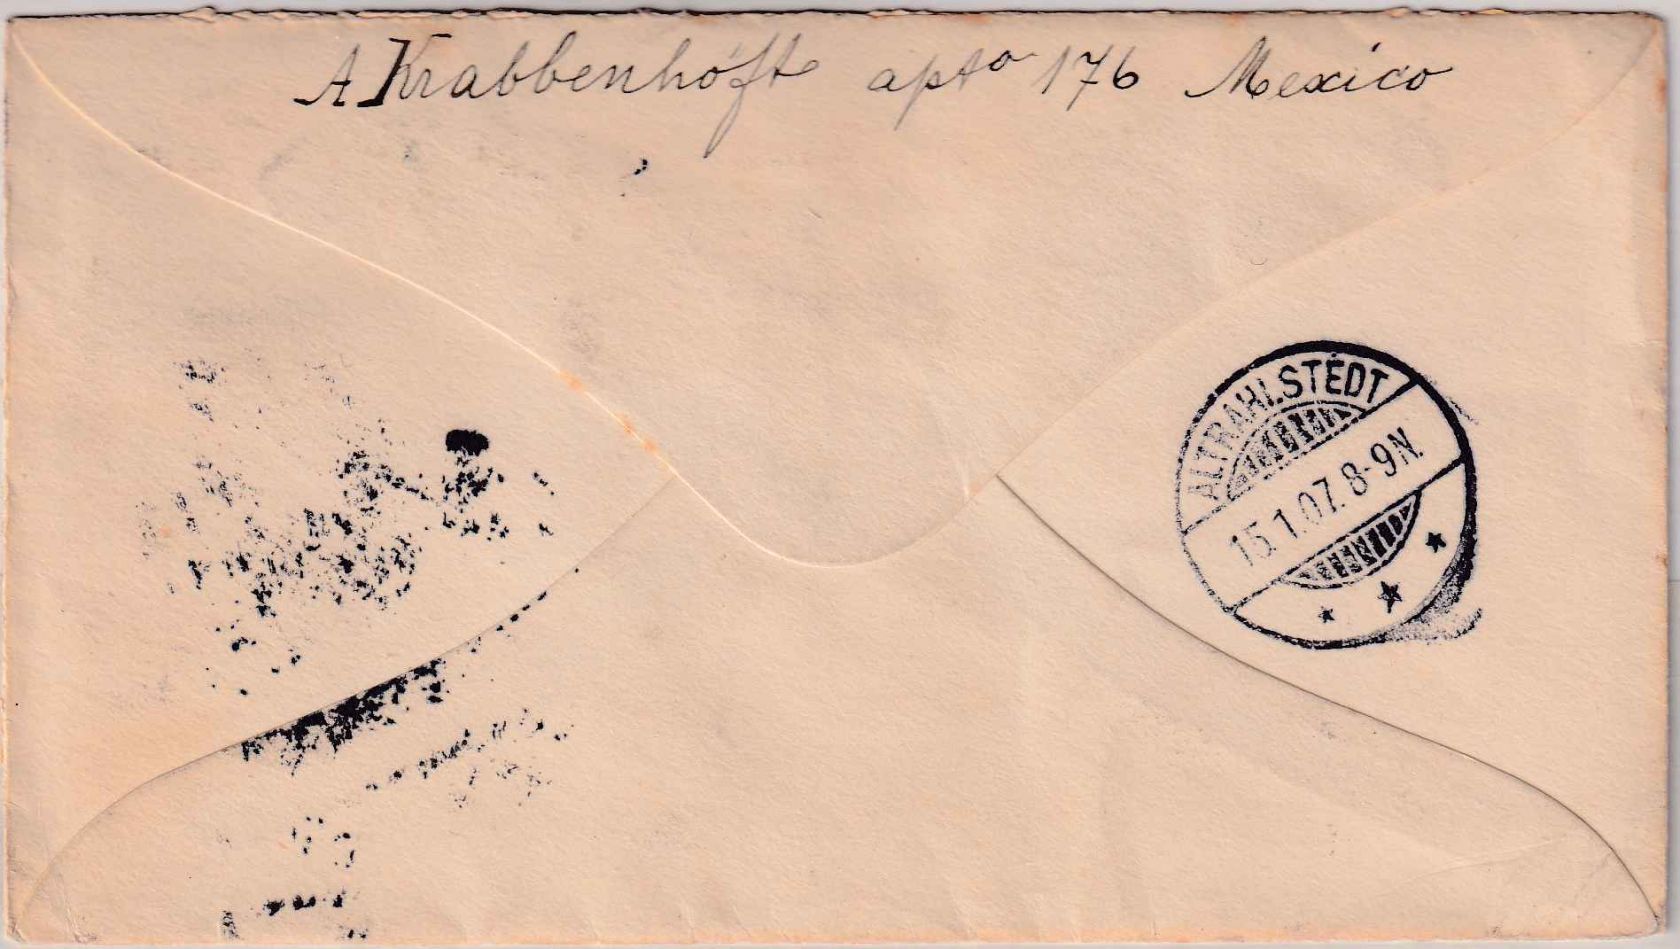 A Krabbenhöft apto 176 Mexico
ALTRAHLSTEDT
15.1.07. 8-9N.